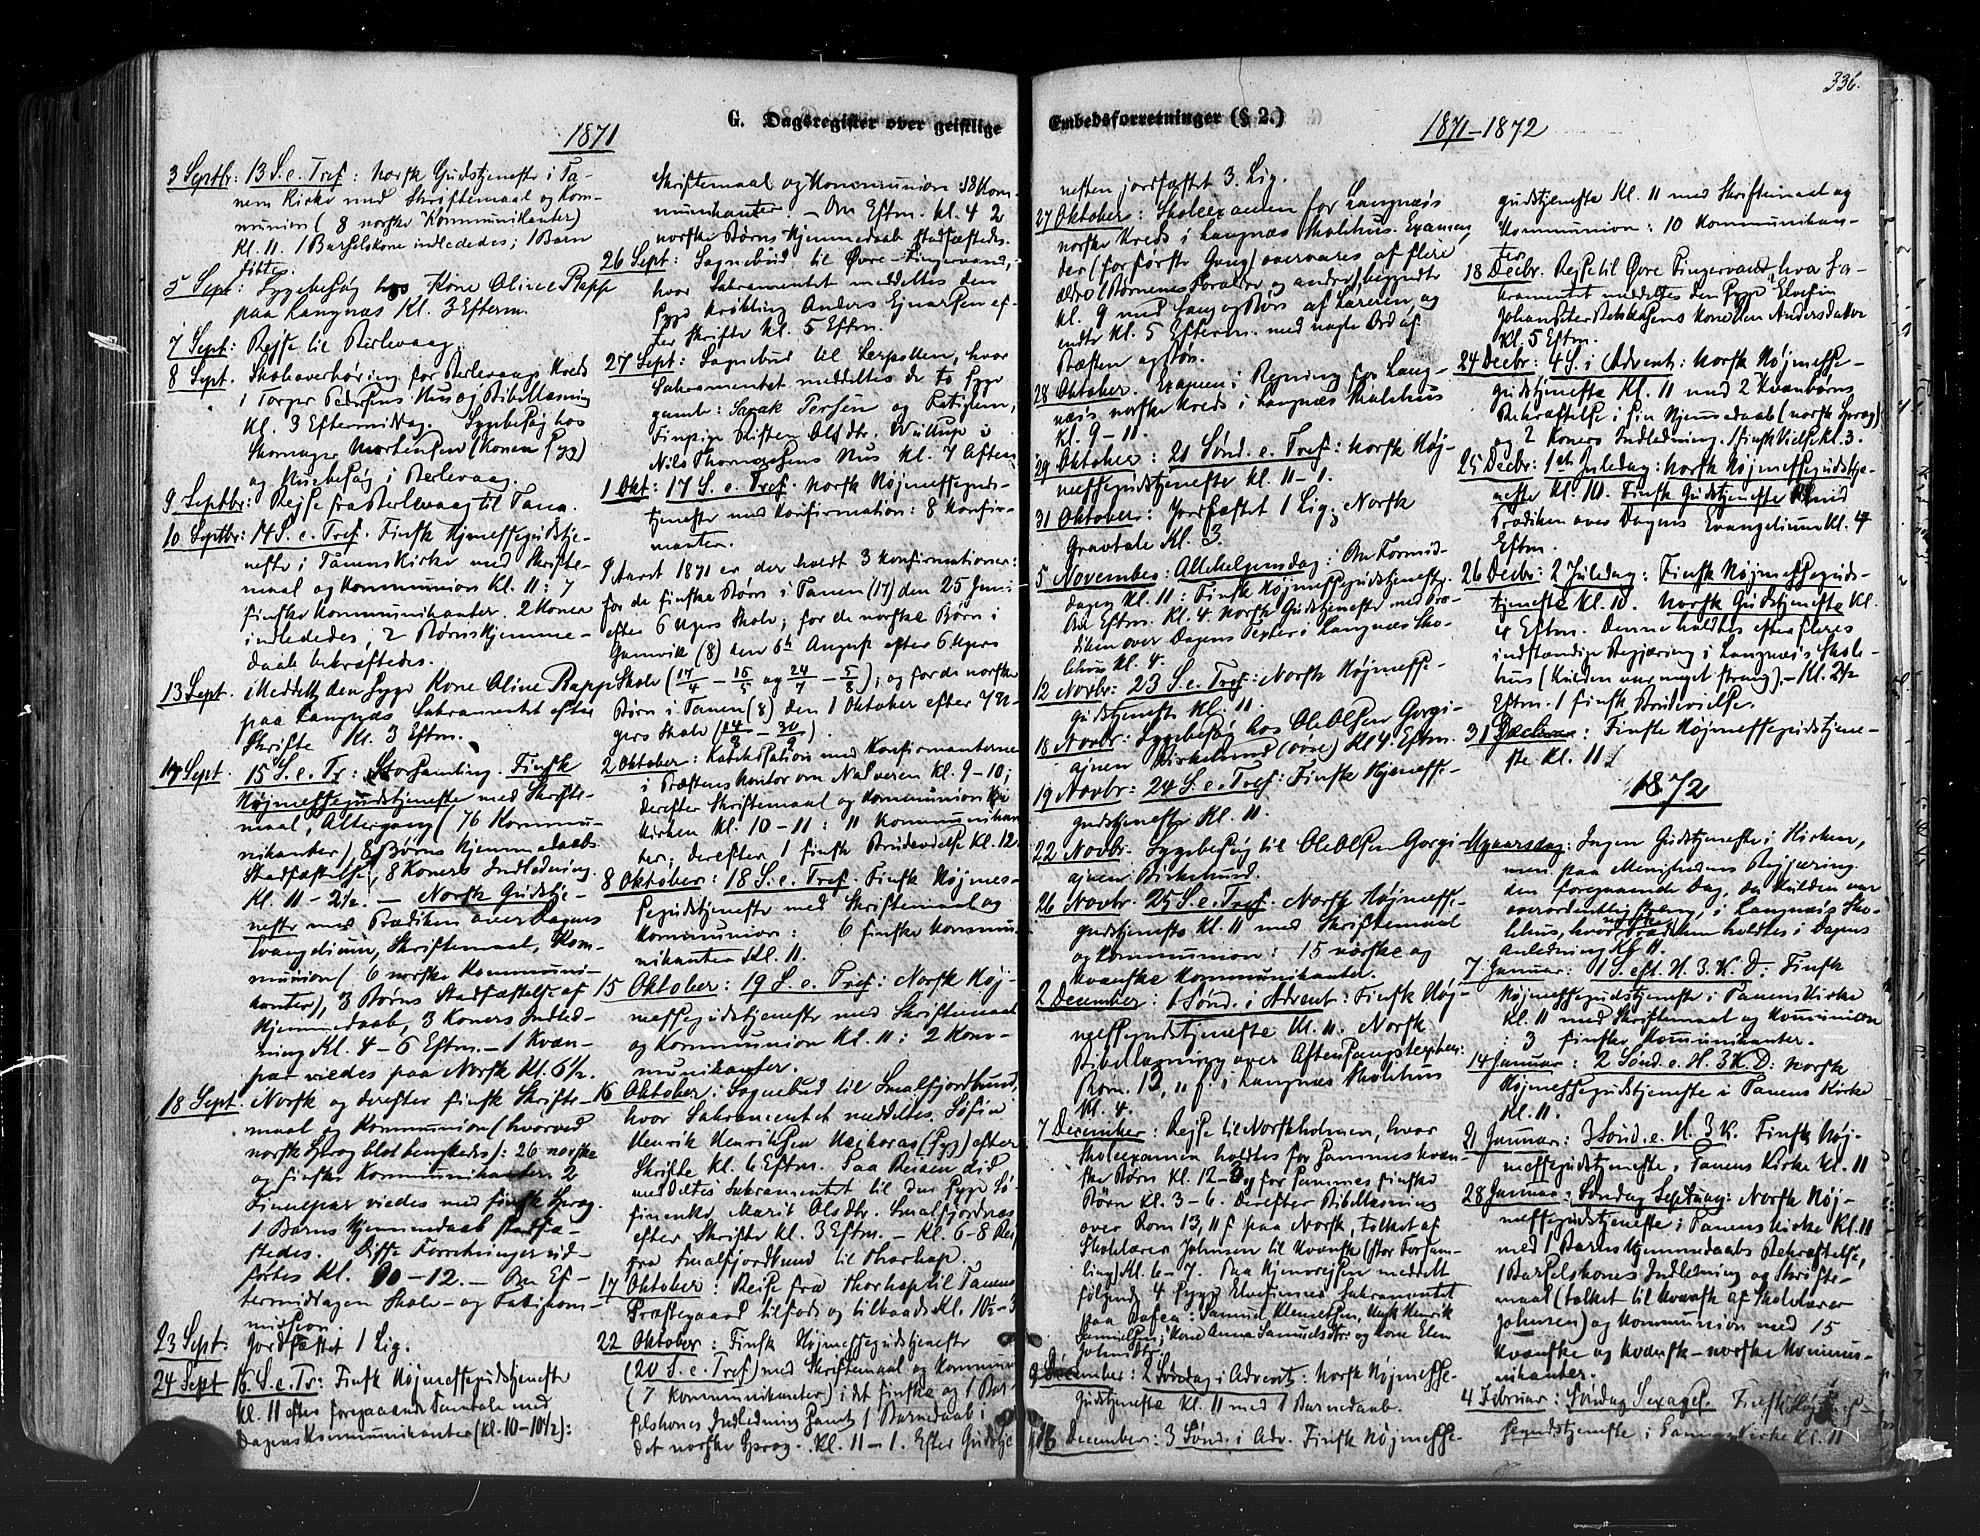 336.
G. Dagsregister over geistlige
Embedsforretninger (§ 2.)
1871
1871–1872
3 Septbr: 13 S. e. Tref: Norsk Gudstjeneste i Ta-
nens Kirke med Skriftemaal og Kom-
munion (8 norske Kommunikanter)
Kl. 11. 1 Barselskone indlededes; 1 Barn
døbtes.
5 Sept: Sygebesøg hos Kone Oline Rapp
paa Langnæs Kl. 3 Efterm.
7 Sept: Rejse til Berlevaag.
8 Sept. Skoleoverhøring for Berlevaags Kreds
i Torger Pedersens Hus og Bibellæsning
Kl. 3 Eftermiddag. Sygebesøg hos
Skomager Mortensen (Konen syg)
og Husbesøg i Berlevaag.
9 Septbr: Rejse fra Berlevaag til Tana.
10 Septbr: 14 S. e. Tref. Finsk Højmessegudstje-
neste i Tanens Kirke med Skrifte-
maal og Kommunion Kl. 11: 7
finske Kommunikanter. 2 Koner
indlededes; 2 Børns Hjemme-
daab bekræftedes.
13 Sept. Meddelt den syge Kone Oline Rapp
paa Langnæs Sakramentet efter
Skrifte Kl. 3 Eftm.
17 Sept. 15 S. e. Tr: Storsamling. Finsk
Højmessegudstjeneste med Skrifte-
maal, Altergang (76 Kommu-
nikanter), 8 Børns Hjemmedaabs
Stadfæstelse, 8 Koners Indledning.
Kl. 11 – 2½. – Norsk Gudstje-
neste med Prædiken over Dagens
Evangelium, Skriftemaal, Kom-
munion (6 norske Kommuni-
kanter), 3 Børns Stadfæstelse af
Hjemmedaab, 3 Koners Indled-
ning Kl. 4 – 6 Eftm. – 1 Kvæn-
par viedes paa Norsk Kl. 6½.
18 Sept. Norsk og derefter finsk Skrifte-
maal og Kommunion (hvorved
norsk Sprog blot benyttedes): 26 norske
og finske Kommunikanter. 2
Finnepar viedes med finsk Sprog.
1 Barns Hjemmedaab stadfæ-
stedes. Disse Forretninger ud-
førtes Kl. 10–12. – Om Ef-
termiddagen Skole- og Fattigkom-
mission.
23 Sept. Jordfæstet 1 Lig.
24 Sept 16 S. e. Tr: Finsk Højmessegudstjeneste
Kl. 11 efter foregaaende Samtale med
Dagens Kommunikanter (Kl. 10–10½):
Skriftemaal og Kommunion 18 Kom-
munikanter. – Om Eftm. Kl. 4 2
norske Børns Hjemmedaab stadfæstedes.
26 Sept: Sognebud til Øvre-Fingervand,
hvor Sakramentet meddeltes den
syge Krøbling Anders Ejnarsen ef-
ter Skrifte Kl. 5 Eftm.
27 Sept: Sognebud til Lerpollen, hvor
Sakramentet meddeltes de to syge
gamle: Sarak Persen og
Finpige Kirsten Olsdtr. i
Nils Thomassens Hus Kl. 7 Aften
1 Okt: 17 S. e. Tref. Norsk Højmessegud-
tjeneste med Konfirmation: 8 Konfir-
manter.
I Aaret 1871 er der holdt 3 Konfirmationer:
for de finske Børn i Tanen (17) den 25 Juni
efter 6 Ugers Skole; for de norske Børn i
Gamvik (8) den 6te August efter 6 Ugers
Skole (17/4 – 15/5 og 24/7 – 5/8); og for de norske
Børn i Tanen (8) den 1 Oktober efter 7 U-
gers Skole (14/8 – 30/9).
2 Oktober: Katekisation med Konfirmanterne
i Præstens Kontor om Nadveren Kl. 9–10;
derefter Skriftemaal og Kommunion i
Kirken Kl. 10–11: 11 Kommunikan-
ter; derefter 1 finsk Brudevielse Kl. 12.
8 Oktober: 18 S. e. Tref. Finsk Højmes-
segudstjeneste med Skriftemaal og
Kommunion: 6 finske Kommu-
nikanter Kl. 11.
15 Oktober: 19 S. e. Tref: Norsk Høj-
messegudstjeneste med Skriftemaal
og Kommunion Kl. 11: 2 Kom-
munikanter.
16 Oktober: Sognebud til Smalfjordbund,
hvor Sakramentet meddeltes Søfin
Henrik Henriksen (syg) efter
Skrifte Kl. 6 Eftm. Paa Reisen did
meddeltes Sakramentet til den syge Sø-
finenke Marit Olsdtr. Smalfjordnæs
efter Skrifte Kl. 3 Eftm. – Kl. 6–8 Rejse
fra Smalfjordbund til Thorhop.
17 Oktober: Rejse fra Thorhop til Tanens
Præstegaard tilfods og tilbaads Kl. 10½–3
22 Oktober: Finsk Højmessegudstjeneste
(20 S. e. Tref) med Skriftemaal og Kommunion
(7 Kommunikanter) i det finske og 1 Bar-
selskones Indledning samt 1 Barnedaab i
det norske Sprog. Kl. 11–1. Efter Gudstje-
nesten jordfæstet 3 Lig.
27 Oktober: Skoleexamen for Langnæs
norske Kreds i Langnæs Skolehus. Examen,
der (for første Gang) overvares af flere
Ældre (Børnenes Forældre og andre), begyndte
Kl. 9 med Sang og Bøn af Læreren, og
endte Kl. 5 Efterm. med nogle Ord af
Præsten og Bøn.
28 Oktober. Examen i Regning for Lang-
næs norske Kreds i Langnæs Skolehus
Kl. 9–11.
29 Oktober: 21 Sønd. e. Tref: Norsk Høj-
messegudstjeneste Kl. 11–1.
31 Oktober: Jordfæstet 1 Lig; Norsk
Gravtale Kl. 3.
5 November: Allehelgensdag: Om Formid-
dagen Kl. 11: Finsk Højmessegudstjeneste.
Om Eftm. Kl. 4. Norsk Gudstjeneste med Præ-
diken over Dagens Texter i Langnæs Sko-
lehus Kl. 4.
12 Novbr: 23 S. e. Tref: Norsk Højmesse-
gudstjeneste Kl. 11.
18 Novbr: Sygebesøg hos Ole Olsen Gorgi-
ajnen Birkelund (øvre) Kl 4. Eftm.
19 Novbr: 24 S. e. Tref: Finsk Højmesse-
gudstjeneste Kl. 11.
22 Novbr. Sygebesøg til Ole Olsen Gorgi-
ajnen Birkelund.
26 Novbr. 25 S. e. Tref. Norsk Højmesse-
gudstjeneste Kl. 11 med Skriftemaal
og Kommunion: 15 norske og
kvænske Kommunikanter.
2 December: 1 Sønd. i Advent: Finsk Høj-
messegudstjeneste Kl. 11. Norsk
Bibellæsning over Aftensangstexten:
Rom. 13, 11 f. i Langnæs Skolehus
Kl. 4.
7 December: Rejse til Norskholmen, hvor
Skoleexamen holdtes for sammes kvæn-
ske Børn Kl. 12–3 og for sammes finske
Børn Kl. 3–6. Derefter Bibellæsning
over Rom 13, 11 f paa Norsk, tolket af
Skolelærer Johnsen til Kvænsk (stor Forsam-
ling) Kl. 6–7. Paa Hjemrejsen meddelt
følgende 4 syge Elvefinner Sakramentet
paa : Samuel Klemetsen, Henrik
Samuelsen, Kone Anna Samuelsdtr og Kone Elen
Johnsdtr.
9 December: 2 Søndag i Advent: Norsk Højmesse-
Gudstjeneste Kl. 11 med 1 Barnedaab.
16 December: 3 Sønd. i Adv. Finsk Højmesse-
gudstjeneste Kl. 11 med Skriftemaal og
Kommunion: 10 Kommunikan-
ter.
18 Decbr. Rejse til Øvre Fingervand, hvor Sa-
kramentet meddeltes den syge Elvefin
Johan Kone Andersdatter
Kl. 5 Eftm.
24 Decbr: 4 S. i Advent: Norsk Højmesse-
gudstjeneste Kl. 11 med 2 Kvænbørns
Bekræftelse i sin Hjemmedaab (norsk Sprog)
og 2 Koners Indledning. 1 finsk Vielse Kl. 3.
25 Decbr: 1ste Juledag: Norsk Højmessegudstje-
neste Kl. 10. Finsk Gudstjeneste med
Prædiken over Dagens Evangelium Kl. 4
Eftm.
26 Decbr: 2 Juledag: Finsk Højmessegud-
tjeneste Kl. 10. Norsk Gudstjeneste Kl.
4 Eftm. Denne holdtes efter fleres
indstændige Begjæring i Langnæs Skole-
hus (Kulden var meget streng). – Kl. 2½
Eftm. 1 finsk Brudevielse.
31 Decbr: Finsk Højmessegudstjene-
ste Kl. 11.
1872
Nyaarsdag: Ingen Gudstjeneste i Kirken,
men paa Menighedens Begjæring
den foregaaende Dag, da Kulden var
overordentlig streng, i Langnæs Sko-
lehus, hvor norsk Prædiken holdtes i Dagens
Anledning Kl. 11.
7 Januar: 1 S. eft. H. 3. K. D: Finsk
Højmessegudstjeneste i Tanens Kirke
Kl. 11 med Skriftemaal og Kommunion
: 3 finske Kommunikanter.
14 Januar: 2 Sønd. e. H. 3 K. D: Norsk
Højmessegudstjeneste i Tanens Kirke
Kl. 11.
21 Januar: 3 Sønd. e. H. 3 K. Finsk Høj-
messegudstjeneste i Tanens Kirke Kl. 11
28 Januar: Søndag Septuag: Norsk Høj-
messegudstjeneste i Tanens Kirke Kl. 11
med 1 Barns Hjemmedaabs Bekræftelse,
1 Barselskones Indledning og Skrifte-
maal (tolket til Kvænsk af Skolelærer
Johnsen) og Kommunion med 15
Kvænske og kvænsk-norske Kommu-
nikanter.
4 Februar: Søndag Sexages. Finsk Højmes-
segudstjeneste i Tanens Kirke Kl. 11